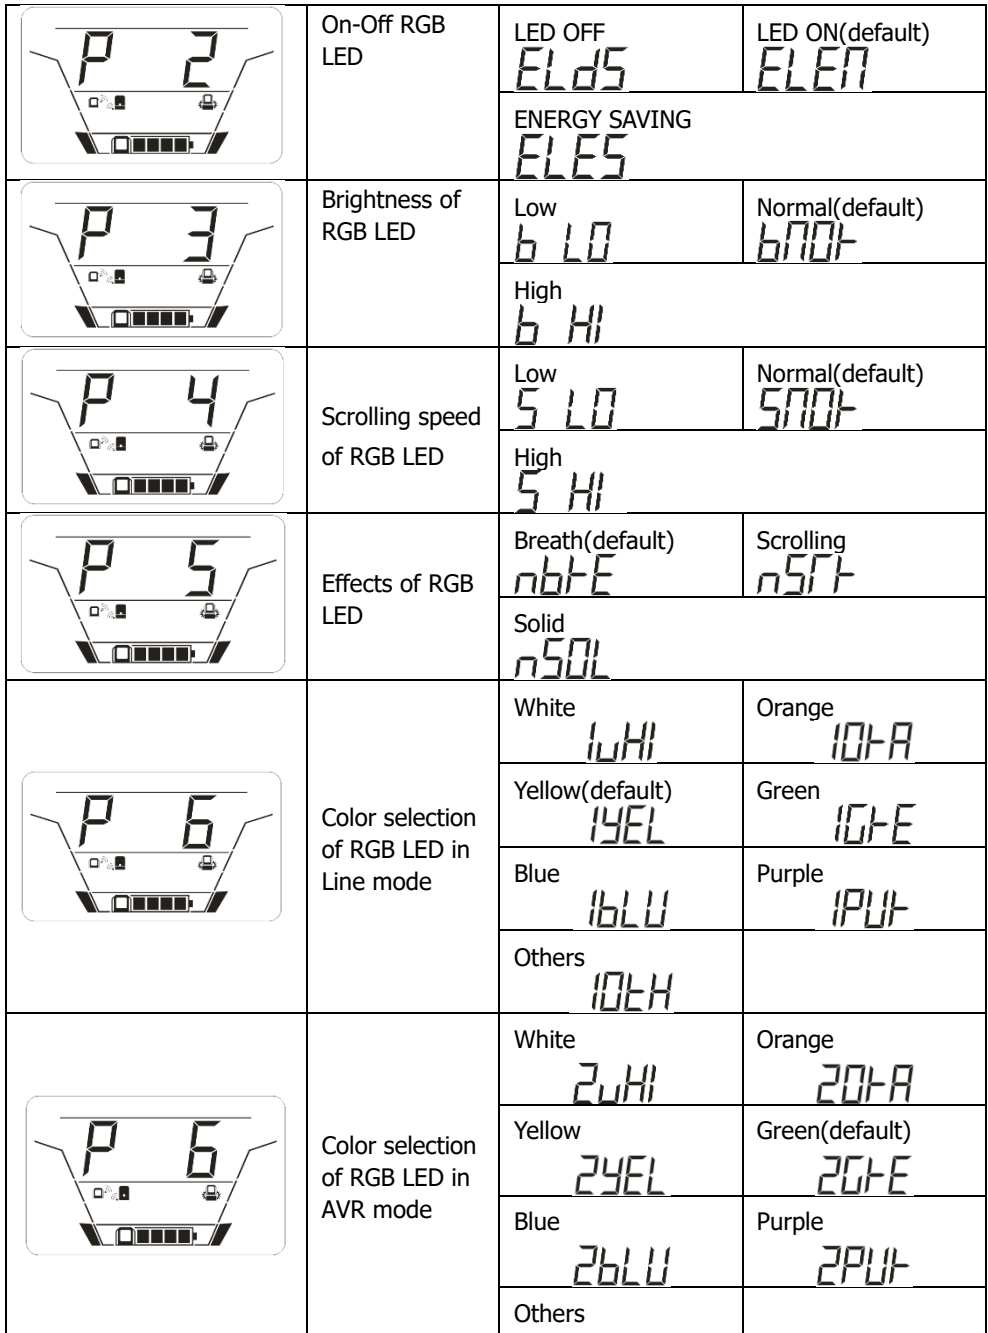 P 2
On-Off RGB
LED
LED OFF
ELdS
LED ON(default)
ELEN
ENERGY SAVING
ELES
P 3
Brightness of
RGB LED
Low
b LO
Normal(default)
bNOr
High
b HI
P 4
Scrolling speed
of RGB LED
Low
S LO
Normal(default)
SNOr
High
S HI
P 5
Effects of RGB
LED
Breath(default)
nbrE
Scrolling
nSCr
Solid
nSOL
P 6
Color selection
of RGB LED in
Line mode
White
1wHI
Orange
1OrA
Yellow(default)
1YEL
Green
1GrE
Blue
1bLU
Purple
1PUr
Others
1OtH
P 6
Color selection
of RGB LED in
AVR mode
White
2wHI
Orange
2OrA
Yellow
2YEL
Green(default)
2GrE
Blue
2bLU
Purple
2PUr
Others